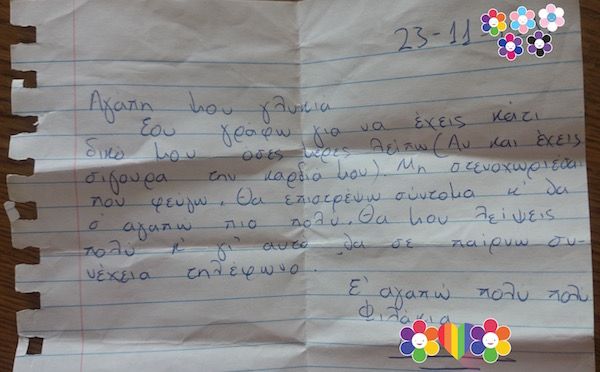 23-11-
Αγαπη μου γλυκιά
Σου γράφω για να έχεις κάτι
δικό μου όσες μέρες λείπω (Αν και έχεις
σίγουρα την καρδιά μου). Μη στενοχωριέσαι
που φεύγω. Θα επιστρέψω σύντομα κ' θα
σ' αγαπώ πιο πολύ. Θα μου λείψεις
πολυ κ' γι' αυτό θα σε παίρνω συ-
νέχεια τηλέφωνο.
Σ' αγαπώ πολυ πολυ
Φιλάκια